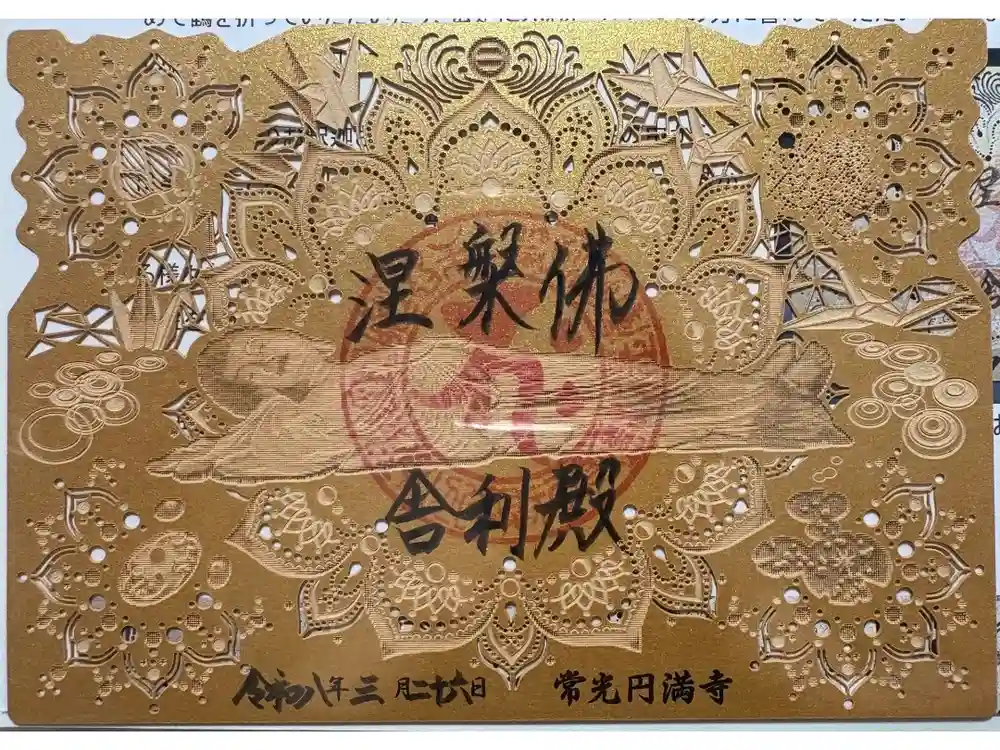 涅槃佛
舎利殿
令和八年三月二十六日 常光円満寺